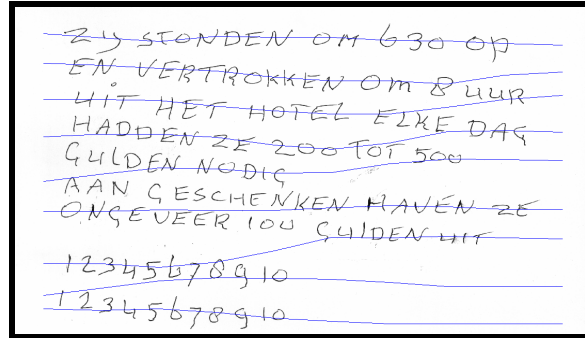 ZY STONDEN OM 630 OP
EN VERTROKKEN OM 8 UUR
UIT HET HOTEL ELKE DAG
HADDEN ZE 200 TOT 500
GULDEN NODIG
AAN GESCHENKEN HAVEN ZE
ONGEVEER 100 GULDEN UIT
12345678910
12345678910